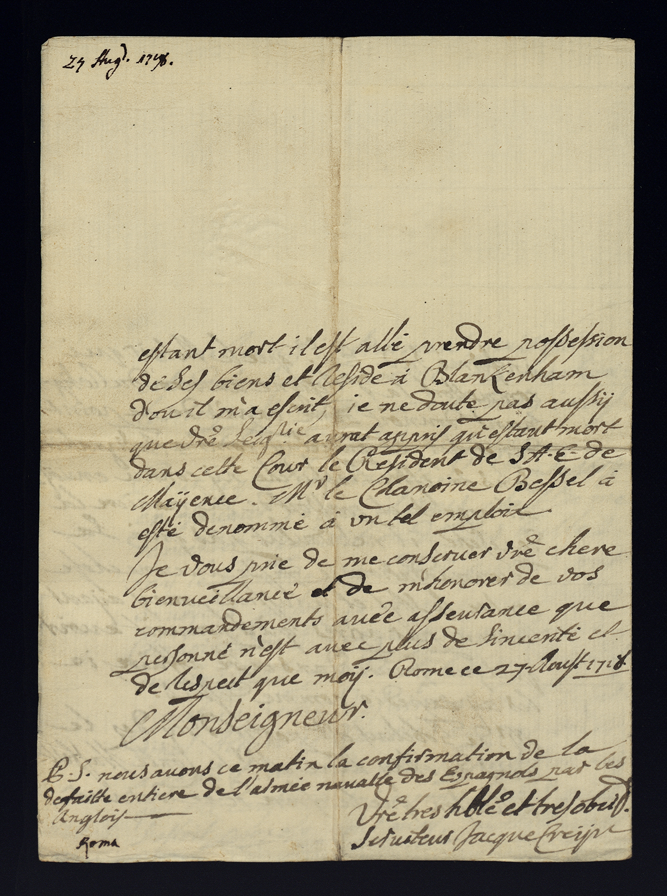 27 Aug. 1718.
estant mort il est allé prendre possession
de ses biens et reside à Blankenham
d'ou il m'a escrit, ie ne doute pas aussij
que vrẽ Seigrie aurat appris qu'estant mort
dans cette Cour le Resident de S.A.E. de
Maÿence. Mr. le Chanoine Bessel à
esté denommé à un tel emploix
Je vous prie de me conserver vrẽ chere
bienveillance et de m'honorer de vos
commandements avec asseurance que
personne n'est avec plus de sincerité et
de respect que moij. Rome ce 27 Aoust 1718
Monseigneur.
P.S. nous avons ce matin la confirmation de la
defaitte entiere de l'armée navalle des Espagnols par les
Anglois
Vrẽ tres hble et tres obeiss.
Serviteur Jacque
Roma